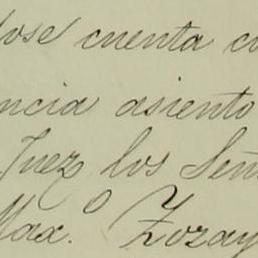 dose cuenta co
ncia asiento
Juez los Señ
Max.º Zozay